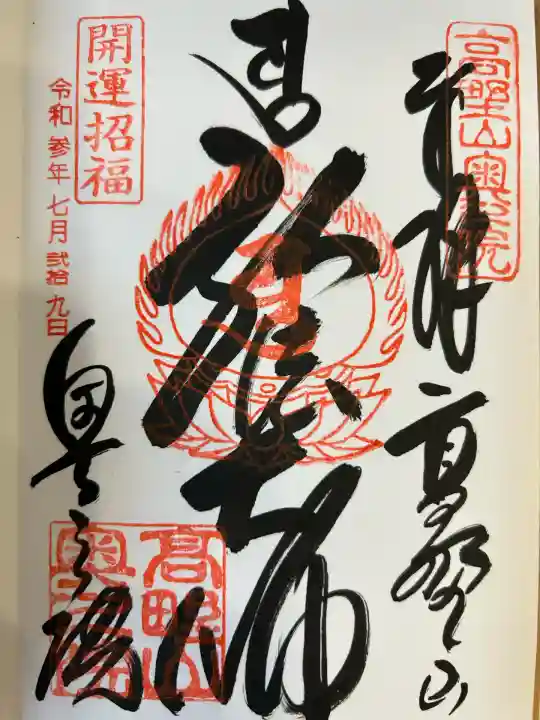 高野山奥之院
奉拝 高野山
弘法大師
開運招福
令和参年七月弐拾九日
奥之院
高野山
奥之院